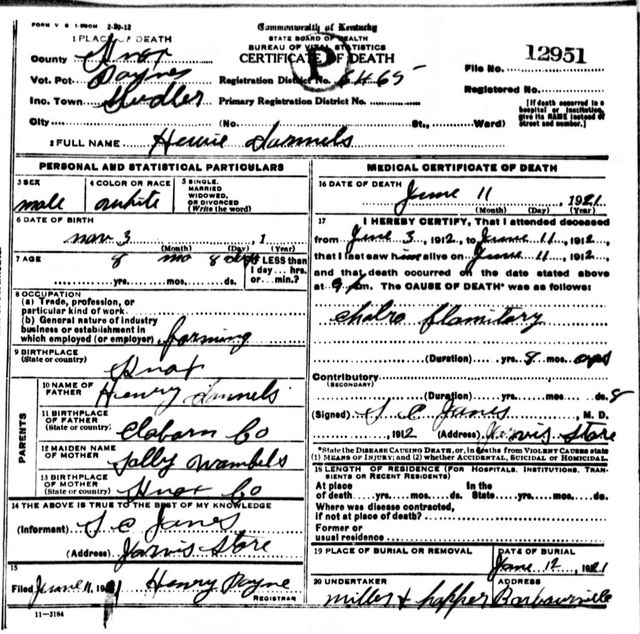 FORM V S 1-500M 2-20-12
Commonwealth of Kentucky
STATE BOARD OF HEALTH
BUREAU OF VITAL STATISTICS
CERTIFICATE OF DEATH
1 PLACE OF DEATH
County Knox
Vot. Pct Payne
Inc. Town
City
Registration District No. 6465
Primary Registration District No.
(No. St., Ward)
File No. 12951
Registered No.
[If death occurred in a
hospital or institution,
give its NAME instead of
street and number.]
2 FULL NAME
PERSONAL AND STATISTICAL PARTICULARS
3 SEX
male
4 COLOR OR RACE
white
5 SINGLE,
MARRIED
WIDOWED,
OR DIVORCED
(Write the word)
6 DATE OF BIRTH
Nov 3 , 1
(Month) (Day) (Year)
7 AGE
8 mo 8 days
yrs. mos. ds.
If LESS than
1 day hrs.
or min.?
8 OCCUPATION
(a) Trade, profession, or
particular kind of work
(b) General nature of industry
business or establishment in
which employed (or employer) farming
9 BIRTHPLACE
(State or country) Knox
PARENTS
10 NAME OF
FATHER Henry
11 BIRTHPLACE
OF FATHER
(State or country) Claborn Co
12 MAIDEN NAME
OF MOTHER Sally Wambels
13 BIRTHPLACE
OF MOTHER
(State or country) Knox Co
14 THE ABOVE IS TRUE TO THE BEST OF MY KNOWLEDGE
(Informant) S C Jones
(Address) Jarvis Store
15
Filed June 11, 1921 Henry Payne
REGISTRAR
11-3184
MEDICAL CERTIFICATE OF DEATH
16 DATE OF DEATH
June 11 , 1921
(Month) (Day) (Year)
17 I HEREBY CERTIFY, That I attended deceased
from June 3, 1912, to June 11, 1912,
that I last saw him alive on June 11, 1912,
and that death occurred on the date stated above
at 9 pm. The CAUSE OF DEATH* was as follows:
(Duration) yrs. 8 mos.
Contributory
(SECONDARY)
(Duration) yrs. mos. ds. 8
(Signed) S C Jones, M. D.
, 1912 (Address) Jarvis Store
*State the DISEASE CAUSING DEATH, or, in deaths from VIOLENT CAUSES state
(1) MEANS OF INJURY; and (2) whether ACCIDENTAL, SUICIDAL or HOMICIDAL.
18 LENGTH OF RESIDENCE (FOR HOSPITALS, INSTITUTIONS, TRAN-
SIENTS OR RECENT RESIDENTS)
At place In the
of death yrs. mos. ds. State yrs. mos. ds.
Where was disease contracted,
if not at place of death?
Former or
usual residence
19 PLACE OF BURIAL OR REMOVAL
DATE OF BURIAL
June 12, 1921
20 UNDERTAKER
ADDRESS
Miller & Hopper Barbourville